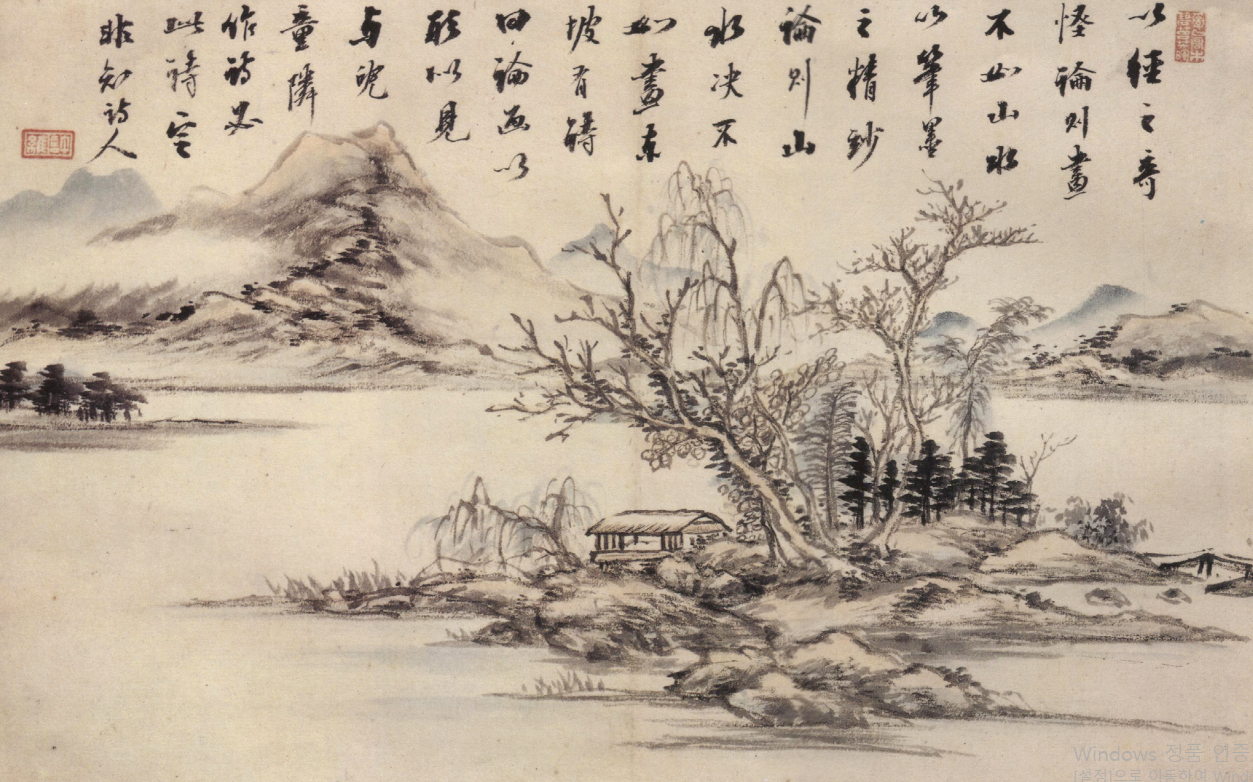 以徑之奇
怪論則畫
不如山水
以筆墨
之精妙
論則山
水决不
如畫東
坡有詩
曰論画以
形似見
与兒
童隣
作詩必
此詩定
非知詩人
Windows 정품 인증